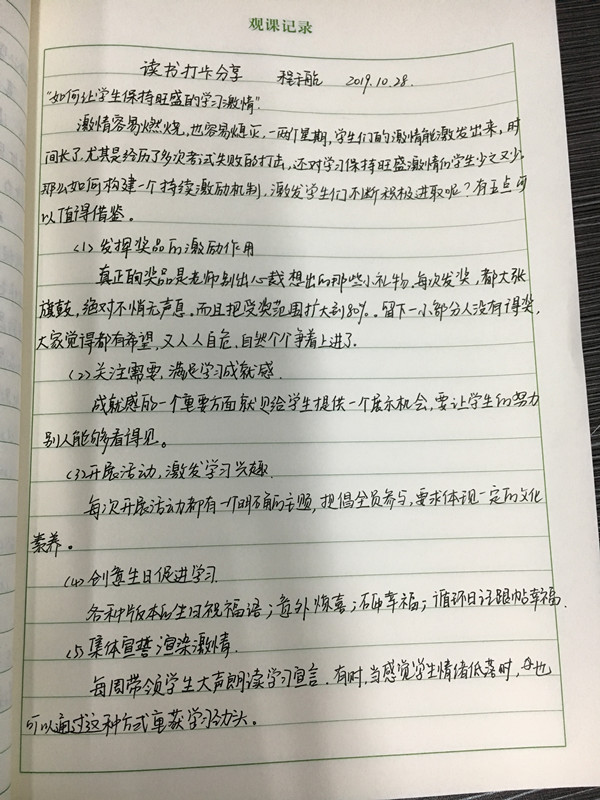 观课记录
读书打卡分享 程 2019.10.28.
"如何让学生保持旺盛的学习激情".
激情容易燃烧,也容易熄灭,一两个星期,学生们的激情能激发出来,时
间长了,尤其是经历了多次考试失败的打击,还对学习保持旺盛激情的学生少之又少.
那么如何构建一个持续激励机制,激发学生们不断积极进取呢?有五点可
以值得借鉴。
(1)发挥奖品的激励作用
真正的奖品是老师别出心裁想出的那些小礼物,每次发奖,都大张
旗鼓,绝对不悄无声息.而且把受奖范围扩大到80%.留下一小部分人没有得奖,
大家觉得都有希望,又人人自危,自然个个争着上进了.
(2)关注需要,满足学习成就感.
成就感的一个重要方面就是给学生提供一个展示机会,要让学生的努力
别人能够看得见。
(3)开展活动,激发学习兴趣.
每次开展活动都有一个明确的主题,提倡全员参与,要求体现一定的文化
素养。
(4)创意生日促进学习.
各种版本的生日祝福语;意外惊喜;幸福;循环日记跟帖幸福.
(5)集体宣誓渲染激情.
每周带领学生大声朗读学习宣言.有时,当感觉学生情绪低落时,也
可以通过这种方式重获学习劲头。